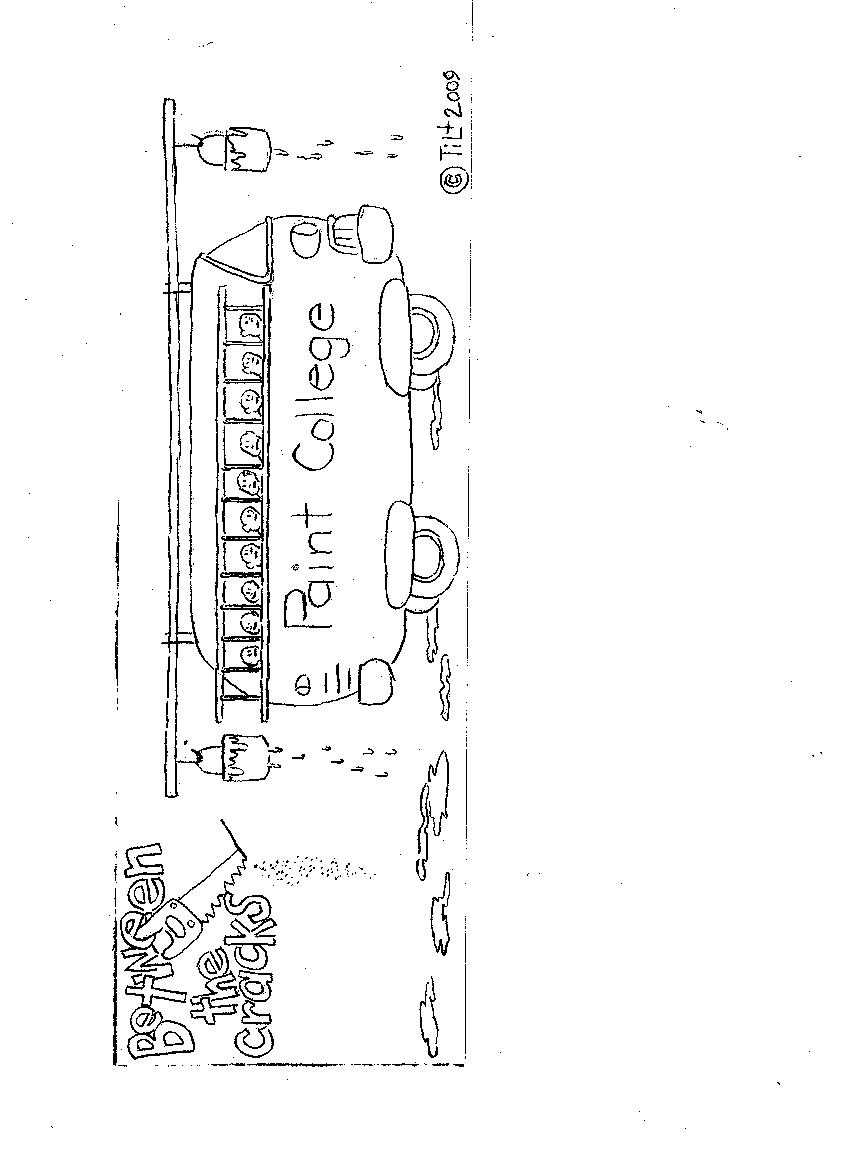 Between
the
cracks
Paint College
© TiLt 2009